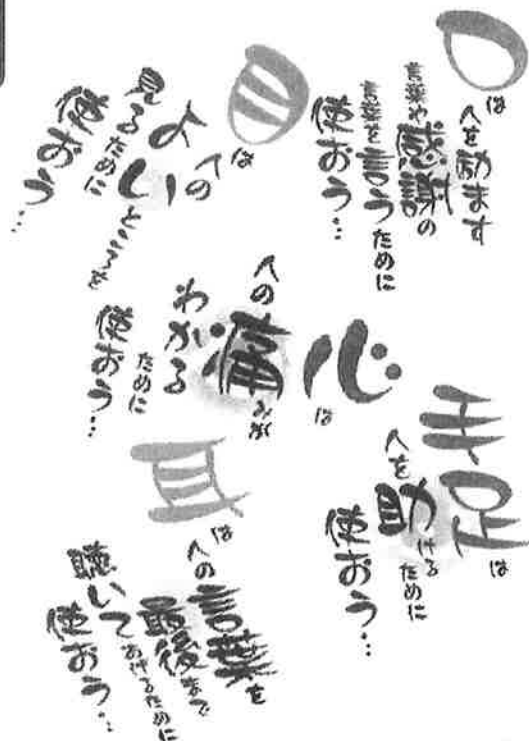 口は
人を励ます
言葉や感謝の
言葉を言うために
使おう…
目は
人の
よいところを
見るために
使おう…
心は
人の痛みが
わかる
ために
使おう…
手足は
人を助けるために
使おう…
耳は
人の言葉を
最後まで
聴いてあげるために
使おう…